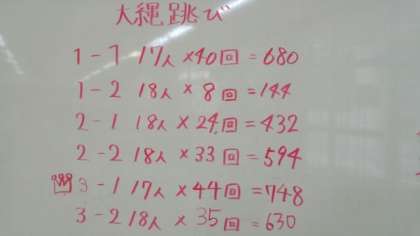 大縄跳び
1-1 17人×40回=680
1-2 18人×8回=144
2-1 18人×24回=432
2-2 18人×33回=594
3-1 17人×44回=748
3-2 18人×35回=630